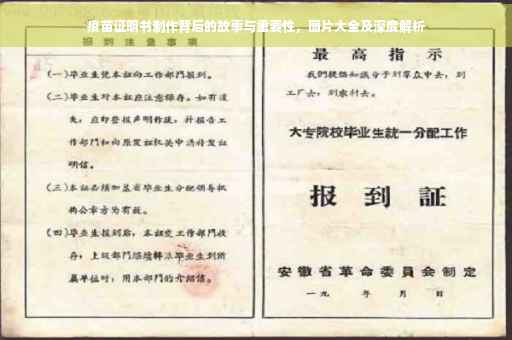 疫苗证明书制作背后的故事与重要性，图片大全及深度解析
报到注意事项
(一)毕业生凭本证向工作部门报到。
(二)毕业生对本证应注意保存。如有遗
失，应即登报声明作废，并报告工
作部门和向原发证机关申请补发证
明信。
(三)本证必须加盖省毕业生分配领导机
构公章方为有效。
(四)毕业生报到后，本证交工作部门收
存；上级部门
单位时，用本部门的介绍信。
最高指示
我们提倡知识分子到群众中去，到
工厂去，到农村去。
大专院校毕业生统一分配工作
报到证
安徽省革命委员会制定
一九 年 月 日